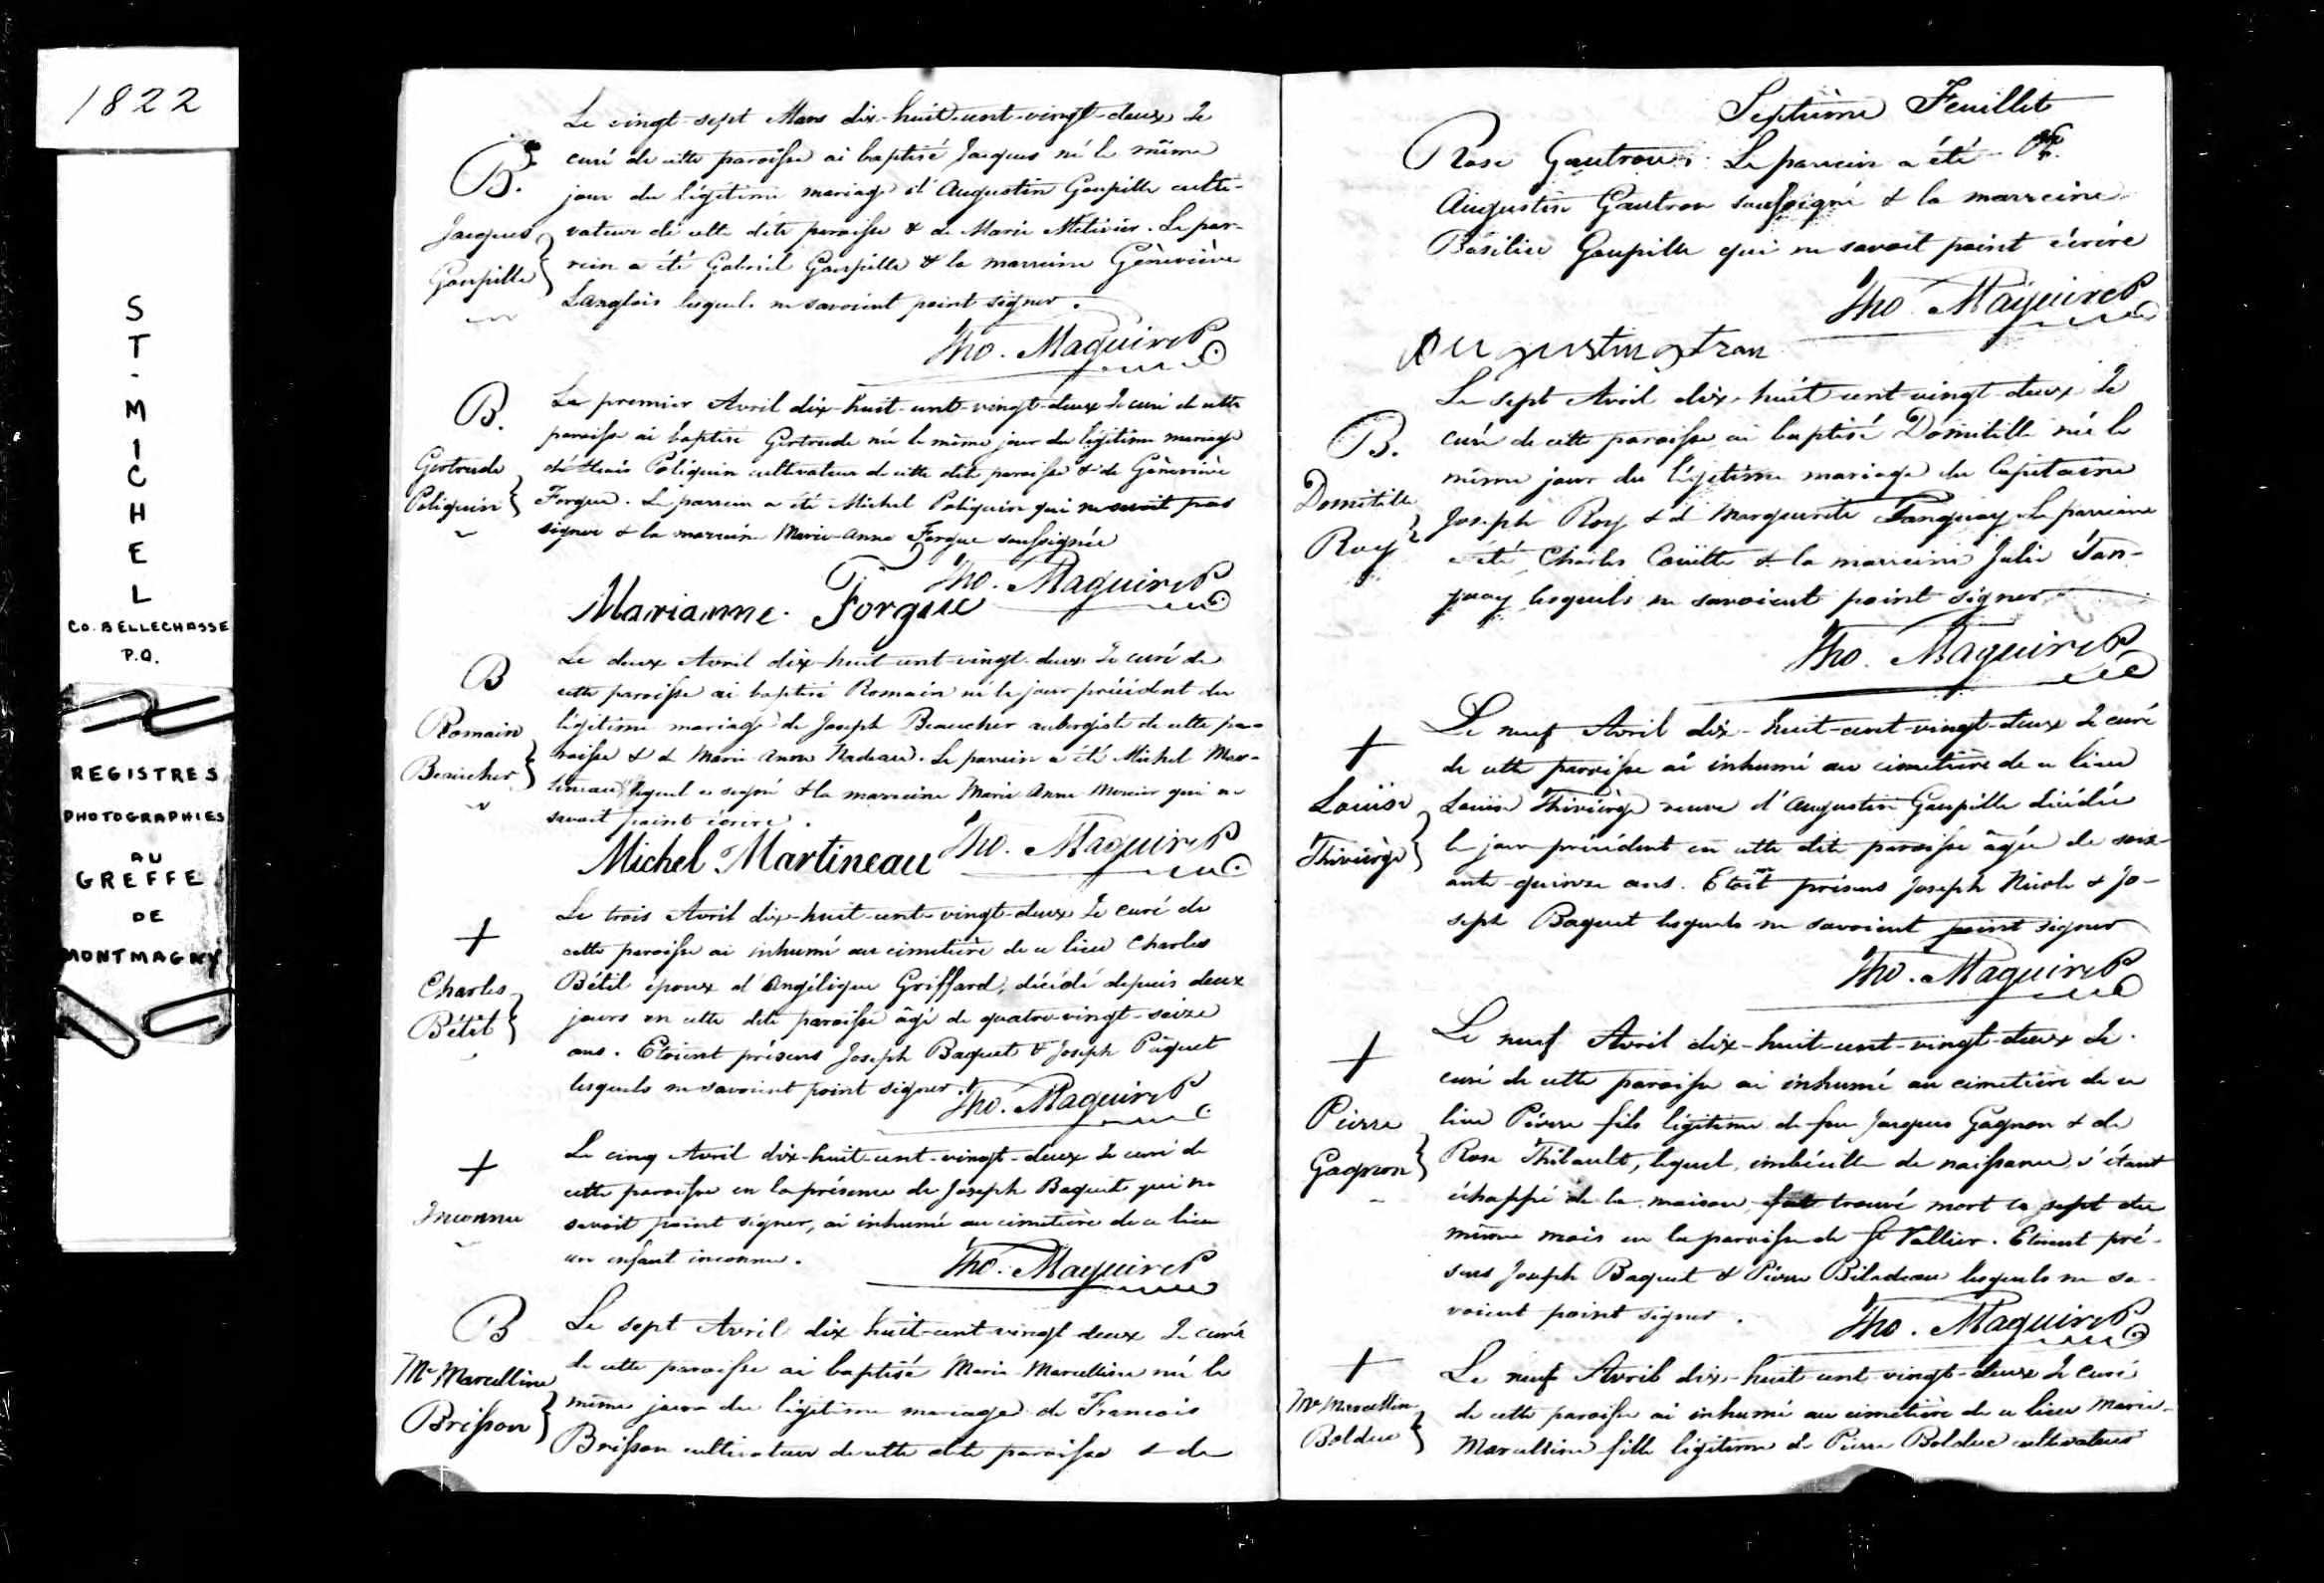 1822
ST-MICHEL
CO. BELLECHASSE
P.Q.
REGISTRES
PHOTOGRAPHIES
AU
GREFFE
DE
MONTMAGNY
Le vingt-sept Mars dix-huit-cent-vingt-deux Je
B.
curé de cette paroisse ai baptisé Jacques né le même
jour du légitime mariage d'Augustin Goupille culti-
Jacques
Goupille
vateur de cette dite paroisse & de Marie Métivier. Le par-
rein a été Gabriel Goupille & la marreine Gèneviève
Langlois lesquels ne savoient point signer.
Tho. Maguire P
B.
Le premier Avril dix-huit-cent-vingt-deux Je curé de cette
paroisse ai baptisé Gertrude née le même jour du légitime mariage
Gertrude
Poliquin
Poliquin cultivateur de cette dite paroisse & de Gèneviève
Forgue. Le parrein a été Michel Poliquin qui ne savoit pas
signer & la marreine Marie-Anne Forgue soussignée
Tho. Maguire P
Marianne. Forgue
B
Le deux Avril dix-huit-cent-vingt-deux Je curé de
cette paroisse ai baptisé Romain né le jour précédent du
Romain
Beaucher
légitime mariage de Joseph Beaucher aubergiste de cette pa-
roisse & de Marie Anne Nadeau. Le parrein a été Michel Mar-
tineau lequel a signé & la marreine Marie Anne Mercier qui ne
savoit point écrire.
Michel Martineau Tho. Maguire P
+
Le trois Avril dix-huit-cent-vingt-deux Je curé de
cette paroisse ai inhumé au cimetière de ce lieu Charles
Charles
Bétil
Bétil époux d'Angélique Griffard, décédé depuis deux
jours en cette dite paroisse âgé de quatre-vingt-seize
ans. Etoient présens Joseph Baquet & Joseph Pâquet
lesquels ne savoient point signer.
Tho. Maguire P
+
Le cinq Avril dix-huit-cent-vingt-deux Je curé de
cette paroisse en la présence de Joseph Baquet qui ne
Inconnu
savoit point signer, ai inhumé au cimetière de ce lieu
un enfant inconnu.
Tho. Maguire P
B
Le sept Avril dix huit-cent-vingt deux Je curé
de cette paroisse ai baptisé Marie-Marcelline née le
Me Marcelline
Brisson
même jour du légitime mariage de Francois
Brisson cultivateur de cette dite paroisse & de
Septième Feuillet
Rose Gautron. Le parrein a été
Augustin Gautron soussigné & la marreine
Basilice Goupille qui ne savoit point écrire
Tho. Maguire P
Augustin gtran
Le sept Avril dix-huit cent vingt-deux Je
B.
curé de cette paroisse ai baptisé Domitille née le
même jour du légitime mariage du Capitaine
Domitille
Roy
Joseph Roy & de Marguerite Tanguay. Le parreine
a été Charles Couilte & la marreine Julie Tan-
guay lesquels ne savoient point signer
Tho. Maguire P
+
Le neuf Avril dix-huit-cent-vingt-deux Je curé
de cette paroisse ai inhumé au cimetière de ce lieu
Louïse
Thivièrge
Louïse Thivièrge veuve d'Augustin Goupille décédée
le jour précédent en cette dite paroisse âgée de soix-
ante-quinze ans. Etoit présens Joseph Nicole & Jo-
seph Baquet lesquels ne savoient point signer
Tho. Maguire P
+
Le neuf Avril dix-huit-cent-vingt-deux Je
curé de cette paroisse ai inhumé au cimetière de ce
Pierre
Gagnon
lieu Pierre fils légitime de feu Jacques Gagnon & de
Rose Thibault, lequel, imbécille de naissance, s'étant
échappé de la maison, fut trouvé mort le sept du
même mois en la paroisse de St Vallier. Etoient pré-
sens Joseph Baquet & Pierre Biladeau lesquels ne sa-
voient point signer.
Tho. Maguire P
+
Le neuf Avril dix-huit cent vingt-deux Je curé
Me Marcelline
Bolduc
de cette paroisse ai inhumé au cimetière de ce lieu Marie-
Marcelline fille légitime de Pierre Bolduc cultivateur